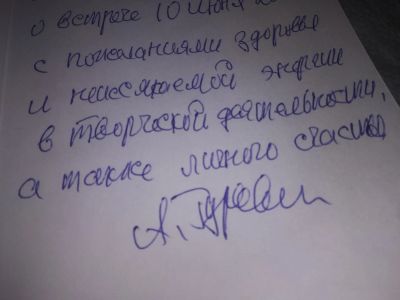 о встрече 10 июня
с пожеланиями здоровья
и неиссякаемой энергии
в творческой деятельности,
а также личного счастья
А. Гуревич